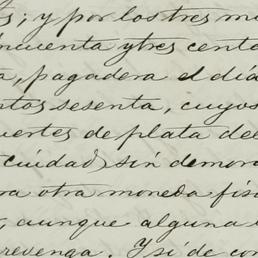 s; y por los tres mi
incuenta y tres cento
a, pagadera el diá
ntos sesenta, cuyos
uertes de plata del
cuidad, sin demora
ra otra moneda fisi
, aunque alguna
revenga. Y si de con